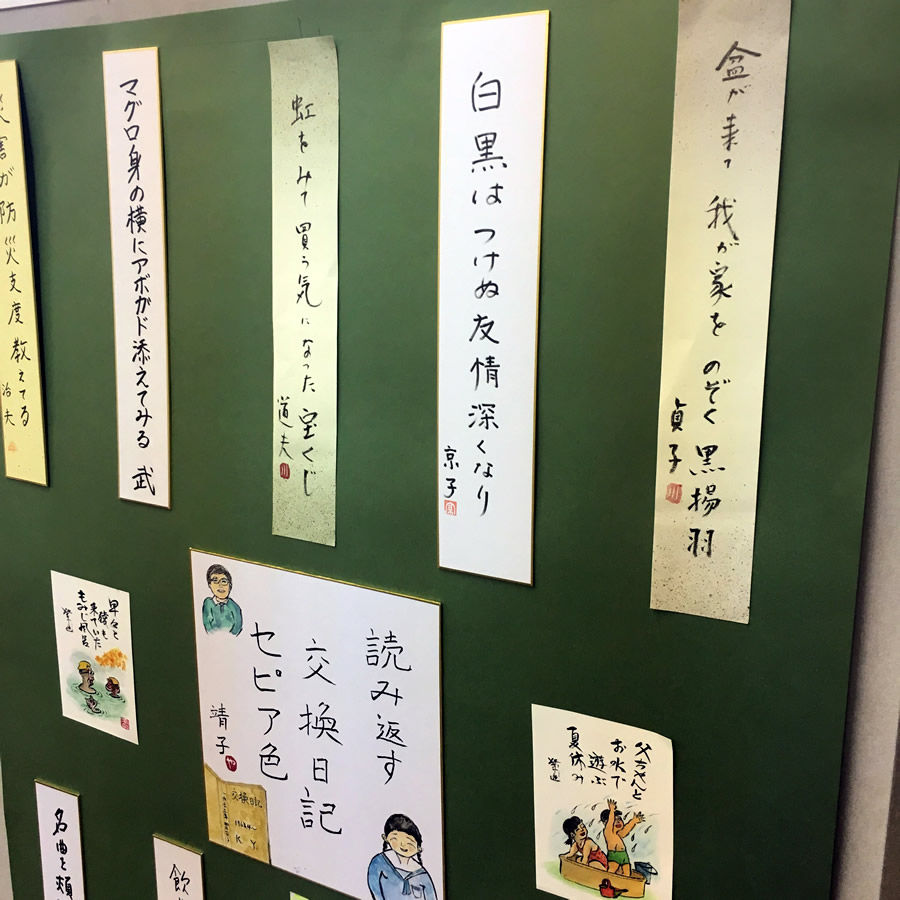 盆が来て我が家をのぞく黒揚羽
貞子
白黒はつけぬ友情深くなり
京子
虹をみて買う気になった宝くじ
道夫
マグロ身の横にアボガド添えてみる 武
災害が防災支度教えてる
治夫
読み返す
交換日記
セピア色
靖子
交換日記
K Y
父ちゃんと
お水で
遊ぶ
夏休み
早々と
猿も
来ていた
もみじ風呂
名曲と頬
飲